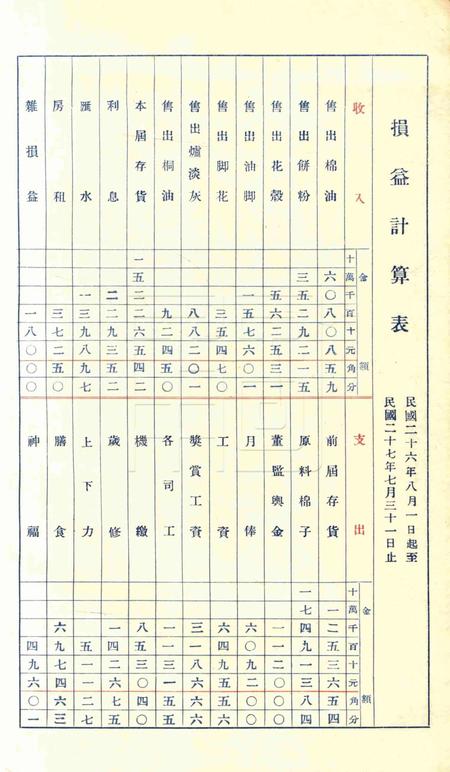 損益計算表
民國二十六年八月一日起至
民國二十七年七月三十一日止
收入
金額
十萬千百十元角分
售出棉油 六〇八〇八五九
售出餅粉 三五二九二一五
售出花殼 五六二九三一
售出油脚 一五七六〇一
售出脚花 三五四七〇
售出爐淡灰 八八二〇一
售出桐油 九二四五〇
本屆存貨 一五二二六五四二
利息 二二九三五二
匯水 一三九八九七
房租 三七二五〇
雜損益 一八〇〇〇
支出
金額
十萬千百十元角分
前屆存貨 一二五三六五四
原料棉子 一七四九一三八四
董監輿金 一一二〇〇〇
月俸 六〇九二〇〇
工資 六四九五六六
獎賞工資 三一八六六六
各司工 一一三一五六
機繳 八五三〇四〇
歲修 一四二六七五
上下力 五一一二七
膳食 六九七四六三
神福 四九六〇一